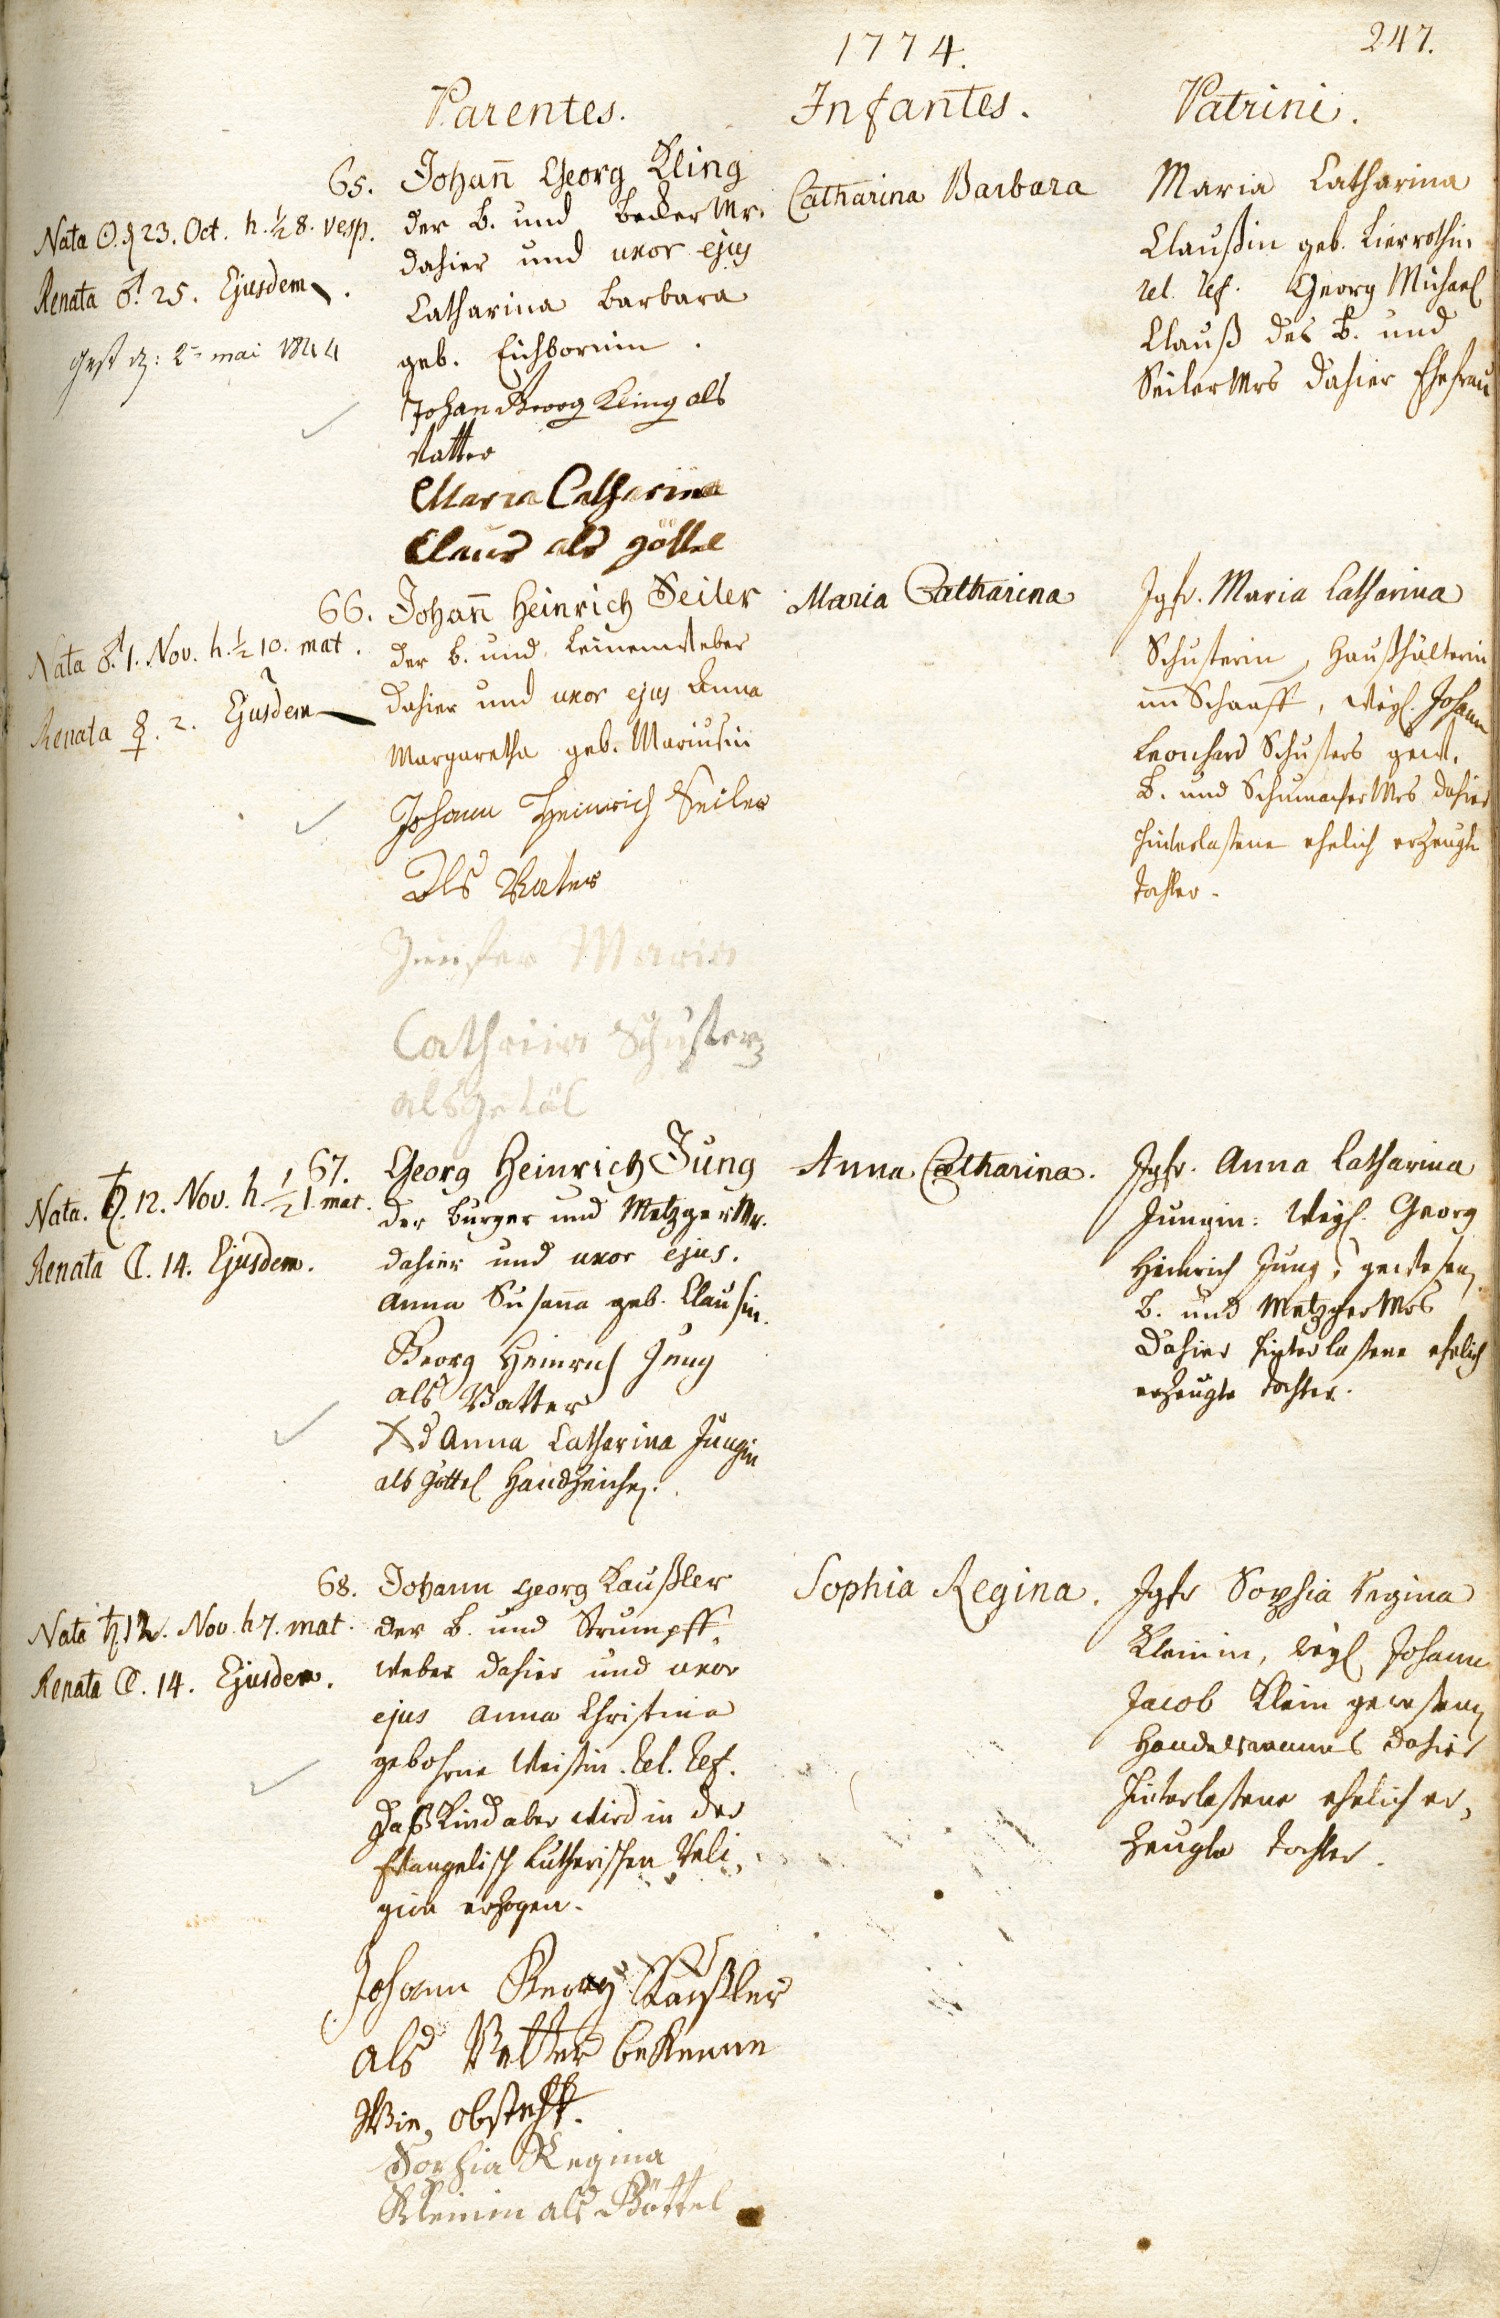 1774.
247.
Parentes.
Infantes.
Patrini.
65.
Nata ☉. d 23. Oct. h. ½ 8. vesp.
Renata ♂. 25. Ejusdem.
gest. d: 2t mai 1844
Johan̄ Georg Kling
der B. und Becker Mr.
dahier und uxor ejus
Catharina Barbara
geb. Eichbornin.
Johan Georg Kling als
vatter
Maria Catharina
Claus als göttel
Catharina Barbara
Maria Catharina
Claußin geb. Lierrothin
rel. ref. Georg Michael
Clauß des B. und
Seiler Mrs dahier Ehefrau
66.
Nata ♂. 1. Nov. h. ½ 10. mat.
Renata ☿. 2. Ejusdem
Johan̄ Heinrich Seiler
der B. und Leinenweber
dahier und uxor ejus Anna
Margaretha geb. Mariusin
Johann Heinrich Seiler
Als Vater
Junfer Maria
Cathrina Schuster
als getäl
Maria Catharina
Jgfr. Maria Catharina
Schusterin, Haußhälterin
im Schaaff, weyl. Johann
Leonhard Schusters gew.
B. und Schumacher Mrs dahier
hinterlaßene ehelich erzeugte
tochter.
67.
Nata. ♄. 12. Nov. h. ½ 1. mat.
Renata ☾. 14. Ejusdem.
Georg Heinrich Jung
der Burger und Metzger Mr.
dahier und uxor ejus.
Anna Susan̄a geb. Clausin.
Georg Heinrich Jung
als Vatter
X d Anna Catharina Jungin
als Göttel Handzeichen.
Anna Catharina.
Jgfr. Anna Catharina
Jungin: weyl. Georg
Heinrich Jung, gewesen
B. und Metzger Mrs
dahier hinterlaßene ehelich
erzeugte tochter.
68.
Nata ♄ 12. Nov. h 7. mat.
Renata ☾. 14. Ejusdem.
Johann Georg Kaußler
der B. und Strumpff-
weber dahier und uxor
ejus Anna Christina
gebohrne Weisin. Rel. Ref.
Daß Kind aber wird in der
Evangelisch Lutherischen Reli-
gion erzogen.
Johann Georg Kaußler
als Vatter bekenne
Wie, obsteht.
Sophia Regina
Kleinin als Göttel
Sophia Regina.
Jgfr Sophia Regina
Kleinin, weyl Johann
Jacob Klein gewesenen
Handelsmannes dahier
hinterlaßene ehelich er-
zeugte tochter.